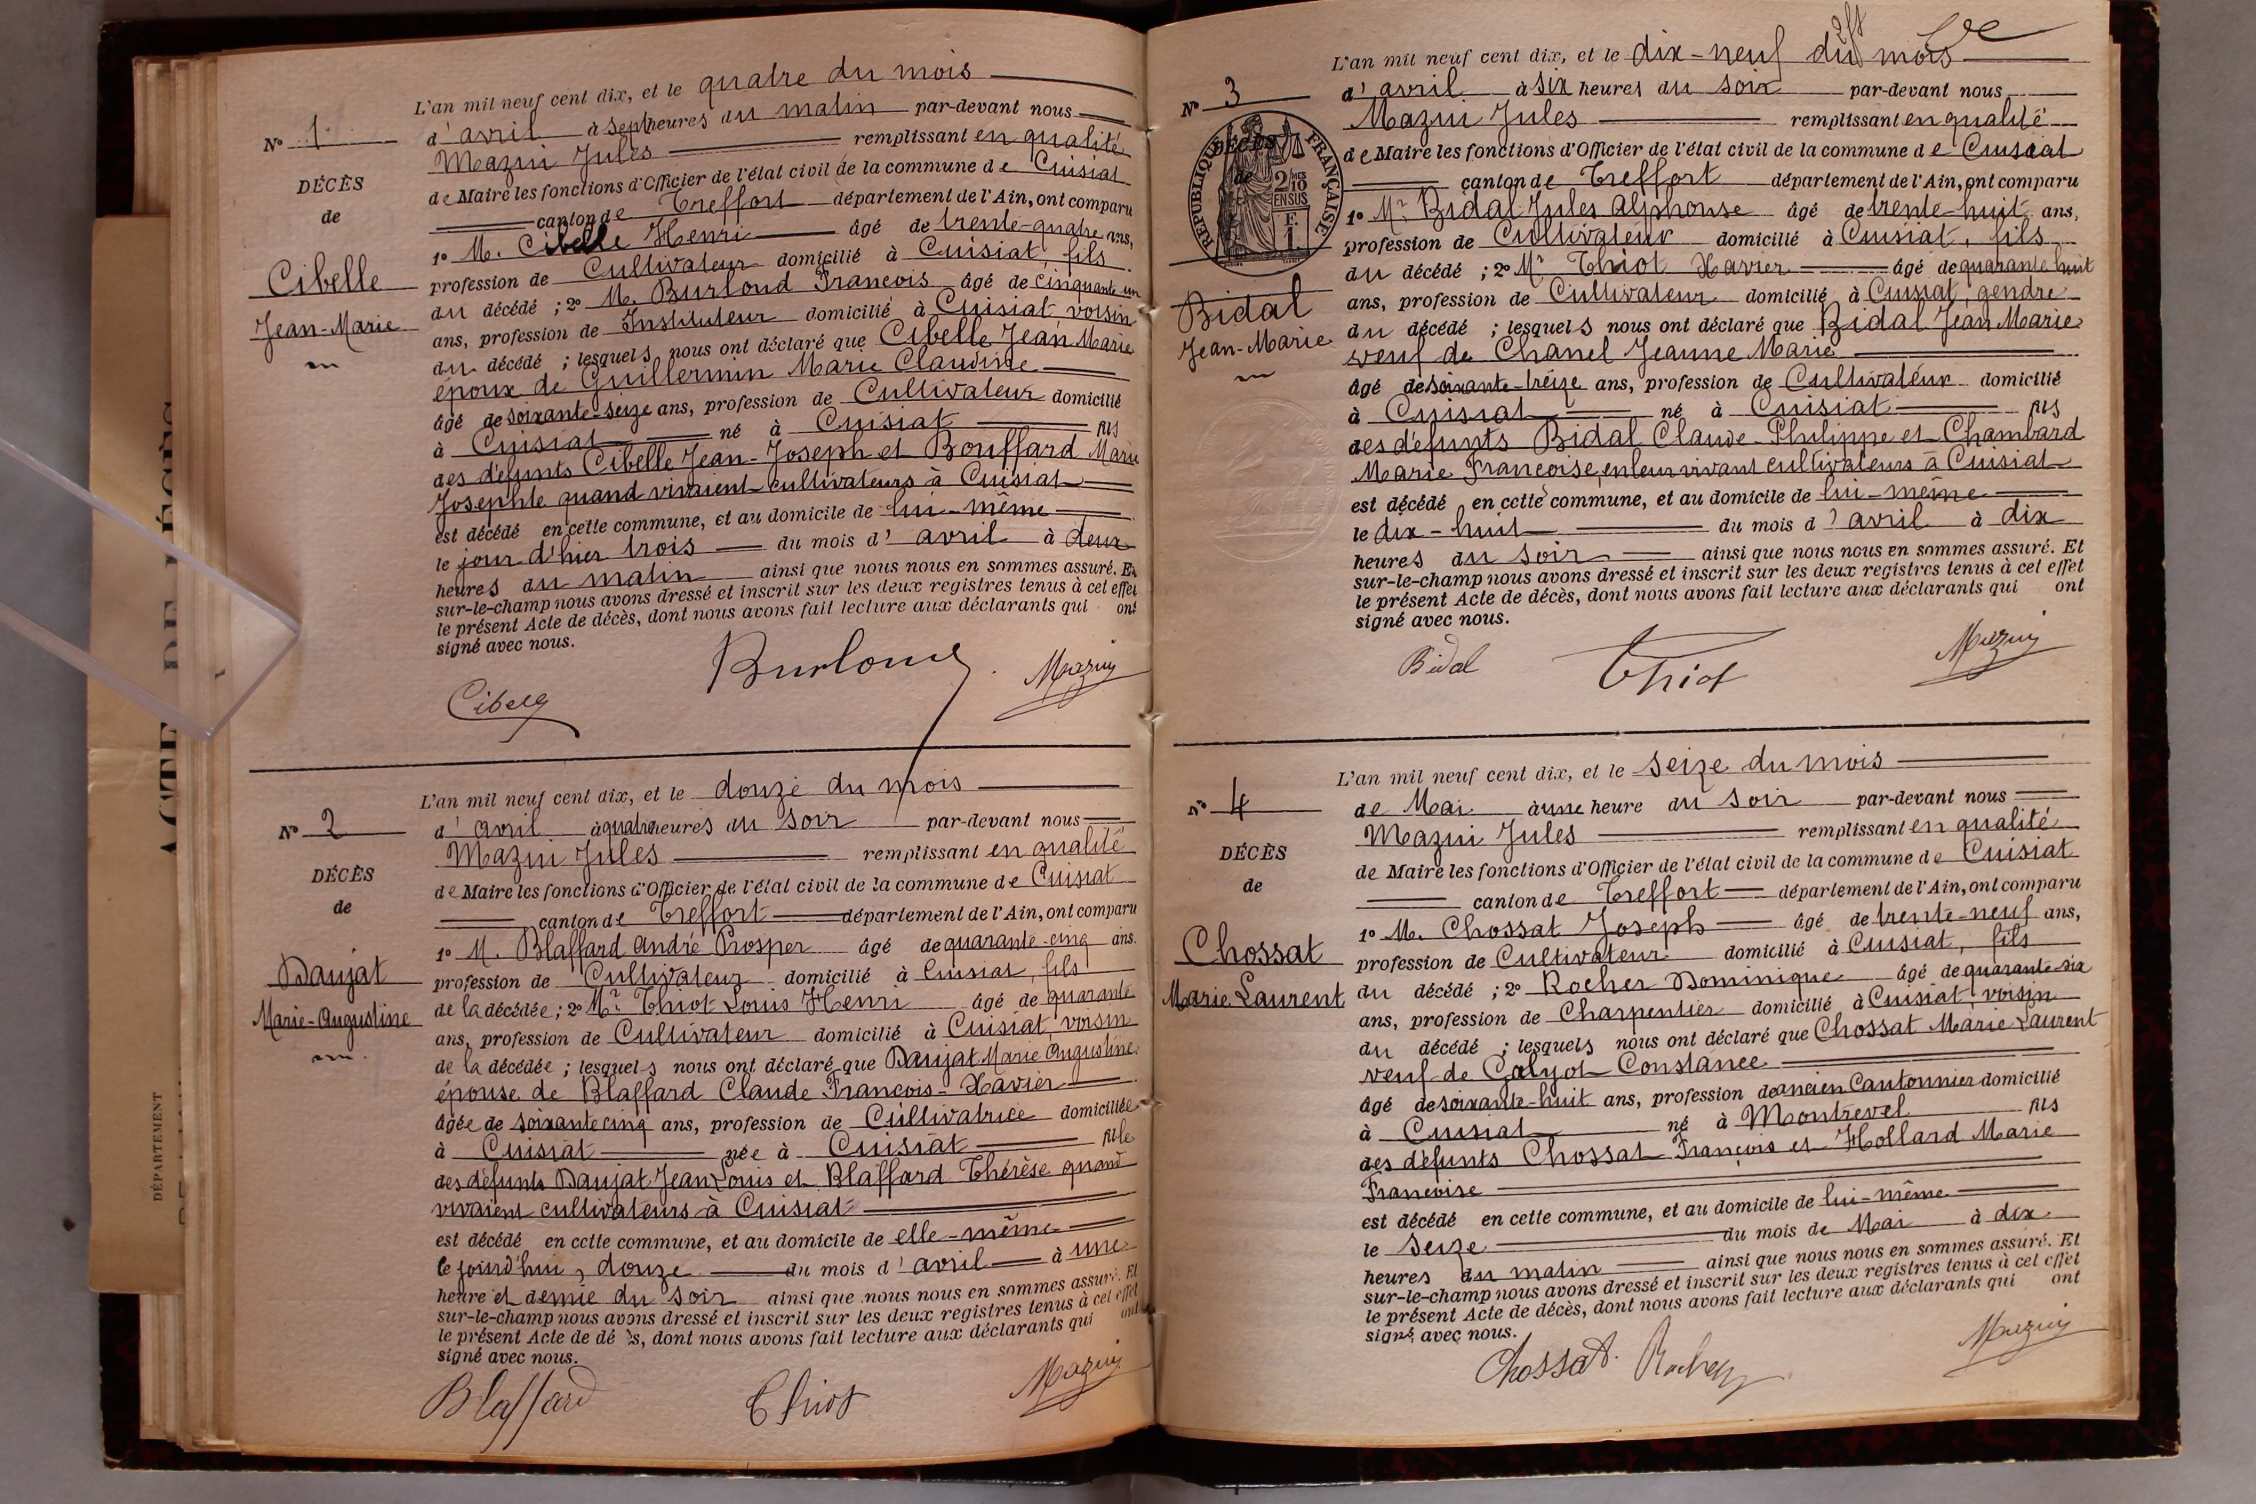 L'an mil neuf cent dix, et le quatre du mois
d'avril à sept heures du matin par-devant nous
Mazui Jules remplissant en qualité
de Maire les fonctions d'Officier de l'état civil de la commune de Cuisiat
canton de Treffort département de l'Ain, ont comparu
1° M. Cibelle Henri âgé de trente-quatre ans,
profession de Cultivateur domicilié à Cuisiat, fils
du décédé ; 2° M. Burloud François âgé de cinquante un
ans, profession de Instituteur domicilié à Cuisiat voisin
du décédé ; lesquels nous ont déclaré que Cibelle Jean Marie
époux de Guillermin Marie Claudine
âgé de soixante-seize ans, profession de Cultivateur domicilié
à Cuisiat né à Cuisiat fils
des défunts Cibelle Jean-Joseph et Bouffard Marie
Josephte quand vivaient cultivateurs à Cuisiat
est décédé en cette commune, et au domicile de lui-même
le jour d'hier trois du mois d'avril à deux
heures du matin ainsi que nous nous en sommes assuré. Et
sur-le-champ nous avons dressé et inscrit sur les deux registres tenus à cet effet
le présent Acte de décès, dont nous avons fait lecture aux déclarants qui ont
signé avec nous.
Burloud Mazuy
N° 1
DÉCÈS
de
Cibelle
Jean-Marie
L'an mil neuf cent dix, et le douze du mois
d'avril à quatre heures du soir par-devant nous
Mazui Jules remplissant en qualité
de Maire les fonctions d'Officier de l'état civil de la commune de Cuisiat
canton de Treffort département de l'Ain, ont comparu
1° M. Blaffard André Prosper âgé de quarante-cinq ans.
profession de Cultivateur domicilié à Cuisiat, fils
de la décédée ; 2° Mr Thiot Louis Henri âgé de quarante
ans, profession de Cultivateur domicilié à Cuisiat voisin
de la décédée ; lesquels nous ont déclaré que Daujat Marie Augustine
épouse de Blaffard Claude François-Xavier
âgée de soixante cinq ans, profession de Cultivatrice domiciliée
à Cuisiat née à Cuisiat fille
des défunts Daujat Jean Louis et Blaffard Thérèse quand
vivaient cultivateurs à Cuisiat
est décédé en cette commune, et au domicile de elle-même
le jourd'hui, douze du mois d'avril à une
heure et demie du soir ainsi que nous nous en sommes assuré. Et
sur-le-champ nous avons dressé et inscrit sur les deux registres tenus à cet effet
le présent Acte de dé s, dont nous avons fait lecture aux déclarants qui ont
signé avec nous.
Blaffard Thiot Mazuy
N° 2
DÉCÈS
de
Daujat
Marie-Augustine
L'an mil neuf cent dix, et le dix-neuf du mois
d'avril à six heures du soir par-devant nous
Mazui Jules remplissant en qualité
de Maire les fonctions d'Officier de l'état civil de la commune de Cuisiat
canton de Treffort département de l'Ain, ont comparu
1° Mr Bidal Jules Alphonse âgé de trente-huit ans,
profession de Cultivateur domicilié à Cuisiat, fils
du décédé ; 2° Mr Thiot Xavier âgé de quarante huit
ans, profession de Cultivateur domicilié à Cuisiat, gendre
du décédé ; lesquels nous ont déclaré que Bidal Jean Marie
veuf de Chanel Jeanne Marie
âgé de soixante-treize ans, profession de Cultivateur domicilié
à Cuisiat né à Cuisiat fils
des défunts Bidal Claude-Philippe et Chambard
Marie Françoise, en leur vivant cultivateurs à Cuisiat
est décédé en cette commune, et au domicile de lui-même
le dix-huit du mois d'avril à dix
heures du soir ainsi que nous nous en sommes assuré. Et
sur-le-champ nous avons dressé et inscrit sur les deux registres tenus à cet effet
le présent Acte de décès, dont nous avons fait lecture aux déclarants qui ont
signé avec nous.
Bidal Thiot Mazuy
N° 3
DÉCÈS
de
RÉPUBLIQUE FRANÇAISE
2/10
EN SUS
F.
1
Bidal
Jean-Marie
L'an mil neuf cent dix, et le seize du mois
de Mai à une heure du soir par-devant nous
Mazui Jules remplissant en qualité
de Maire les fonctions d'Officier de l'état civil de la commune de Cuisiat
canton de Treffort département de l'Ain, ont comparu
1° M. Chossat Joseph âgé de trente-neuf ans,
profession de Cultivateur domicilié à Cuisiat, fils
du décédé ; 2° Rocher Dominique âgé de quarante-six
ans, profession de Charpentier domicilié à Cuisiat, voisin
du décédé ; lesquels nous ont déclaré que Chossat Marie Laurent
veuf de Galyot Constance
âgé de soixante-huit ans, profession de ancien Cantonnier domicilié
à Cuisiat né à Montrevel fils
des défunts Chossat François et Hollard Marie
Françoise
est décédé en cette commune, et au domicile de lui-même
le seize du mois de Mai à dix
heures du matin ainsi que nous nous en sommes assuré. Et
sur-le-champ nous avons dressé et inscrit sur les deux registres tenus à cet effet
le présent Acte de décès, dont nous avons fait lecture aux déclarants qui ont
signé avec nous.
Chossat Rocher Mazuy
N° 4
DÉCÈS
de
Chossat
Marie Laurent
DÉPARTEMENT